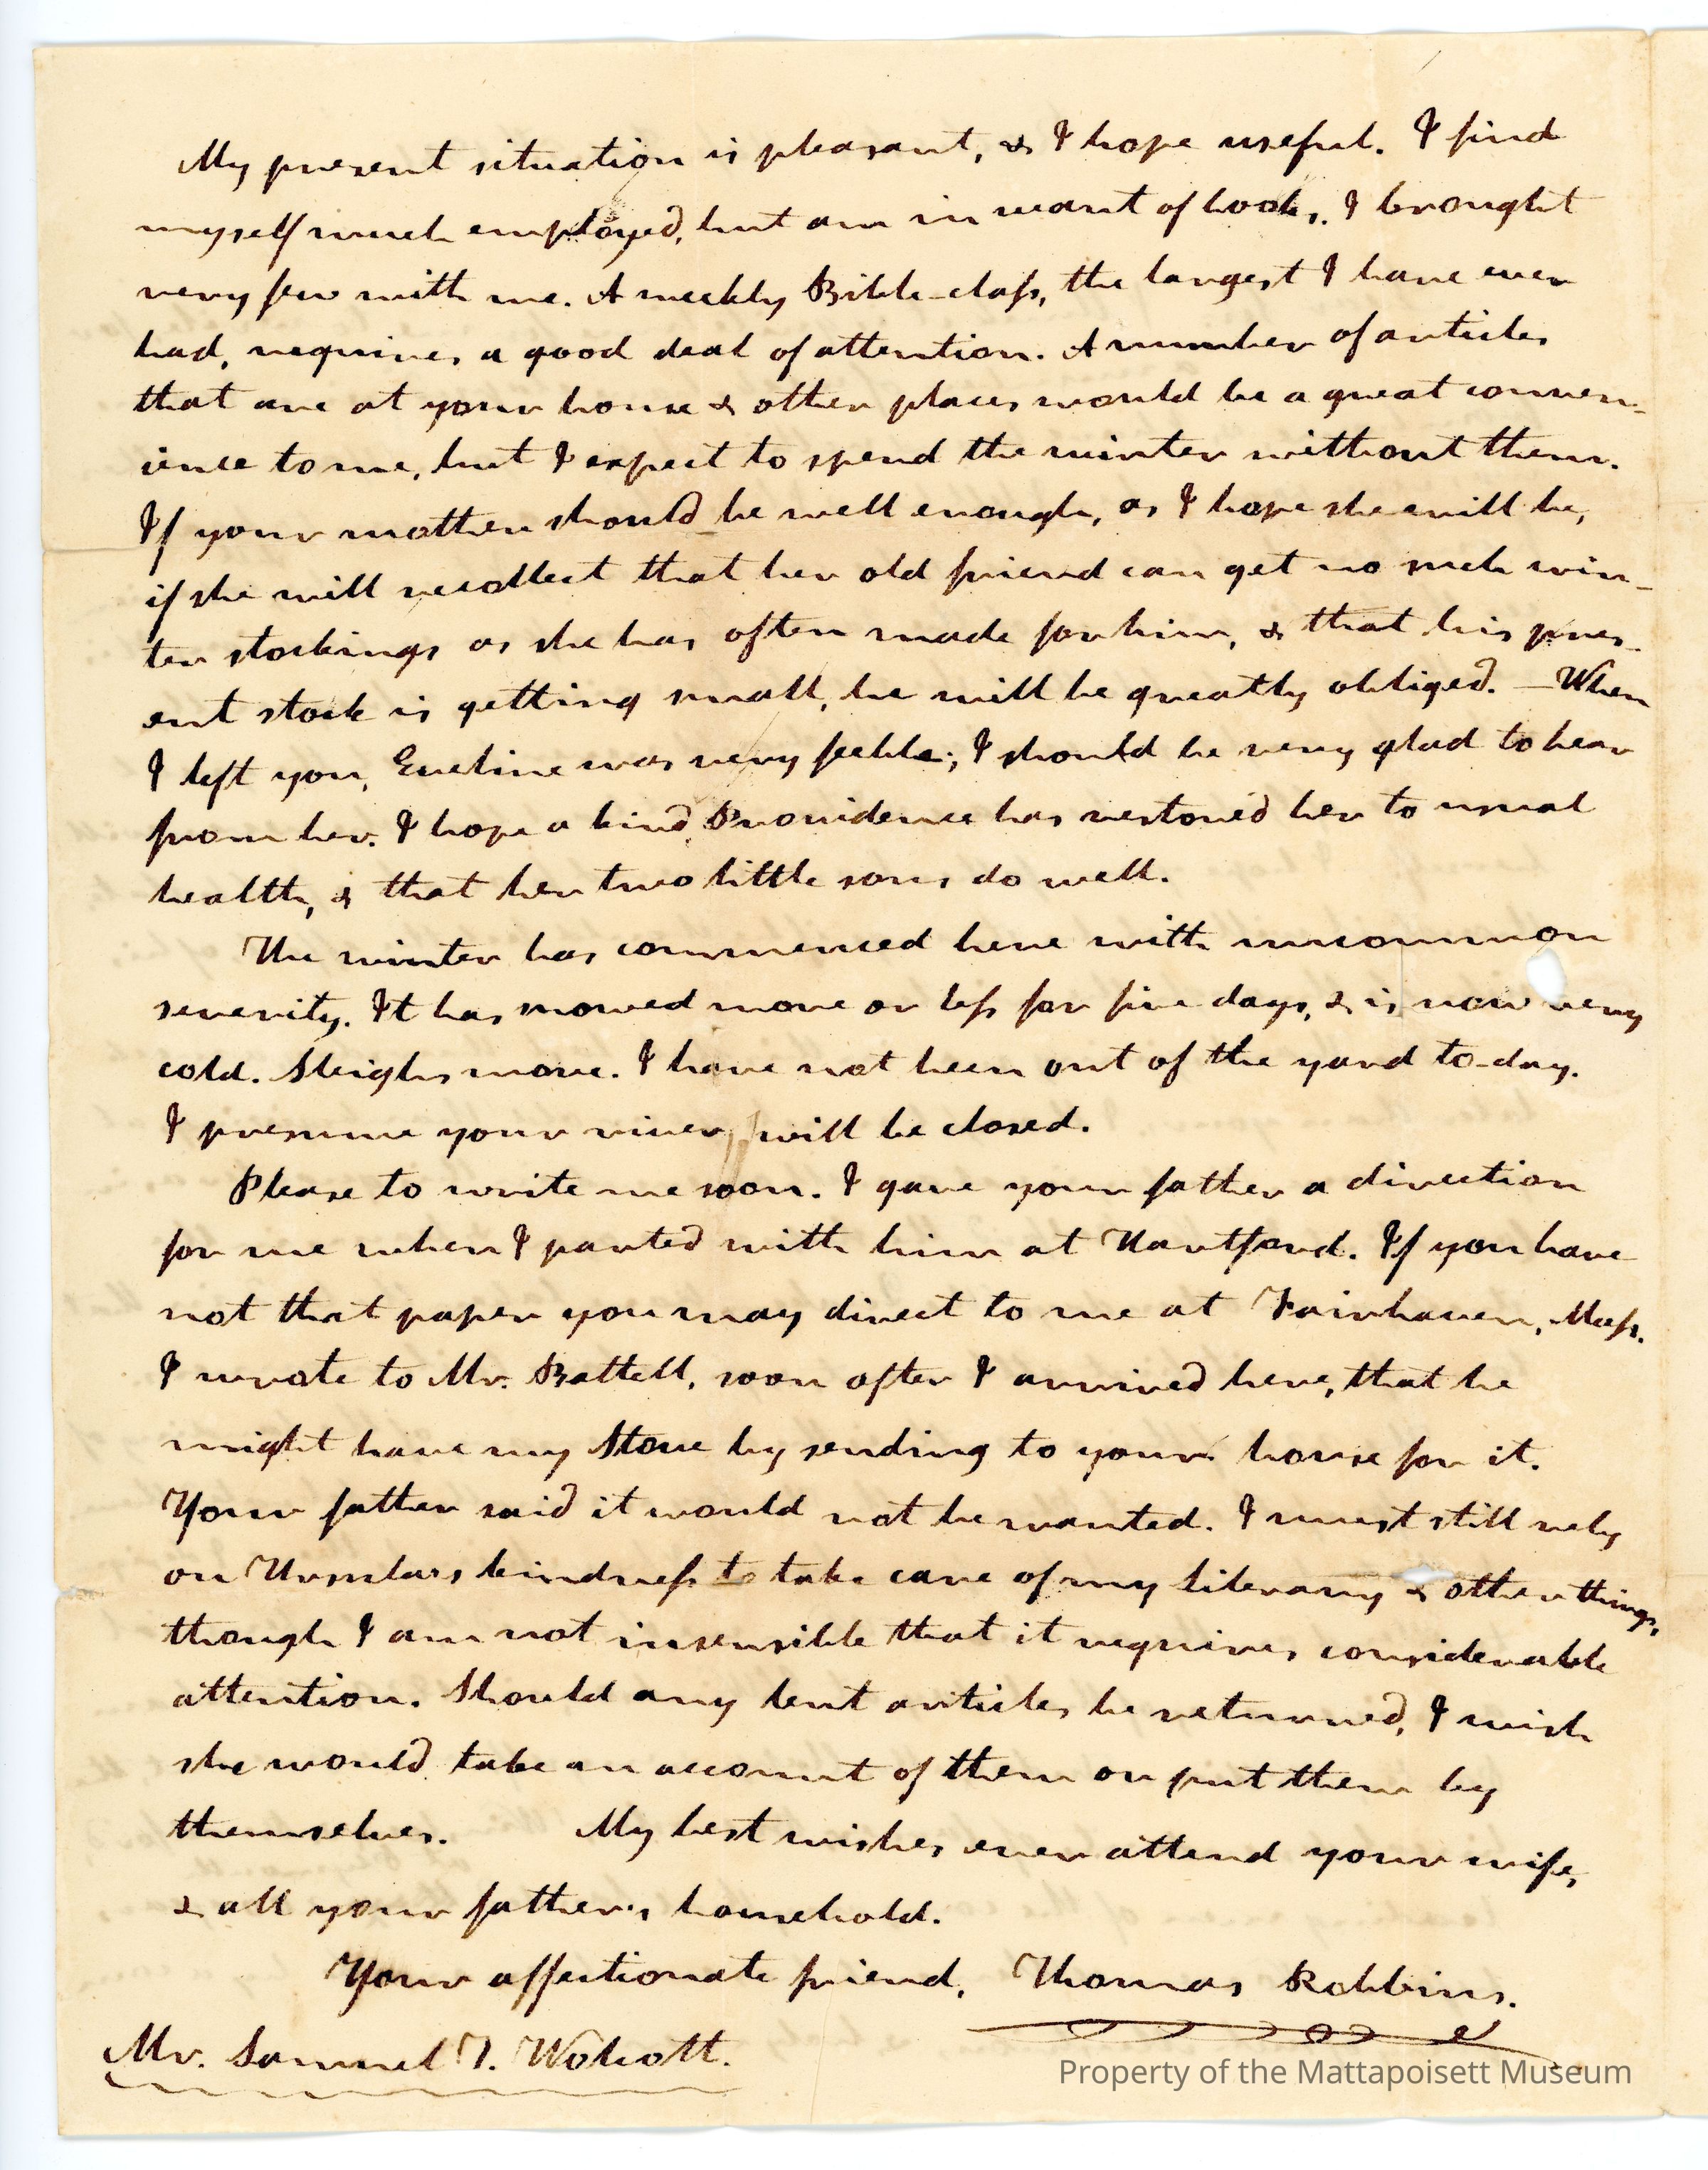 My present situation is pleasant, & I hope useful. I find
myself much employed, but am in want of books. I brought
very few with me. A weekly Bible-class, the largest I have ever
had, requires a good deal of attention. A number of articles
that are at your house & other places would be a great conven-
ience to me, but I expect to spend the winter without them.
If your mother should be well enough, as I hope she will be,
if she will recollect that her old friend can get no such win-
ter stockings as she has often made for him, & that his pres-
ent stock is getting small, he will be greatly obliged. — When
I left you, Eveline was very feeble; I should be very glad to hear
from her. I hope a kind Providence has restored her to usual
health, & that her two little sons do well.
The winter has commenced here with uncommon
severity. It has snowed more or less for five days, & is now very
cold. Sleighs move. I have not been out of the yard to-day.
I presume your river will be closed.
Please to write me soon. I gave your father a direction
for me when I parted with him at Hartford. If you have
not that paper you may direct to me at Fairhaven, Mass.
I wrote to Mr. Battell, soon after I arrived here, that he
might have my Stove by sending to your house for it.
Your father said it would not be wanted. I must still rely
on Ursula's kindness to take care of my literary & other things,
though I am not insensible that it requires considerable
attention. Should any lent articles be returned, I wish
she would take an account of them or put them by
themselves. My best wishes ever attend your wife,
& all your father's household.
Your affectionate friend, Thomas Robbins.
Mr. Samuel T. Wolcott.
Property of the Mattapoisett Museum